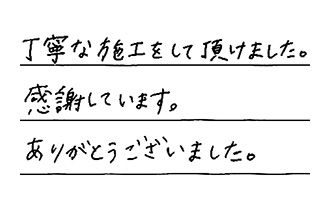 丁寧な施工をして頂けました。
感謝しています。
ありがとうございました。